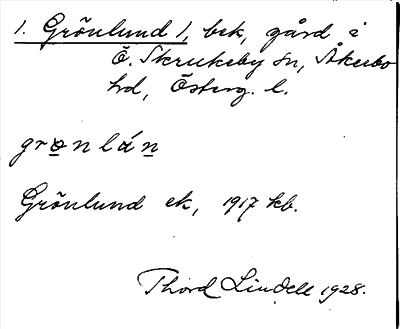 1. Grönlund 1, bek, gård i
Ö. Skrukeby sn, Åkerbo
hd, Österg. l.
grønlán
Grönlund ek, 1917 kb.
Thord Lindell 1928.